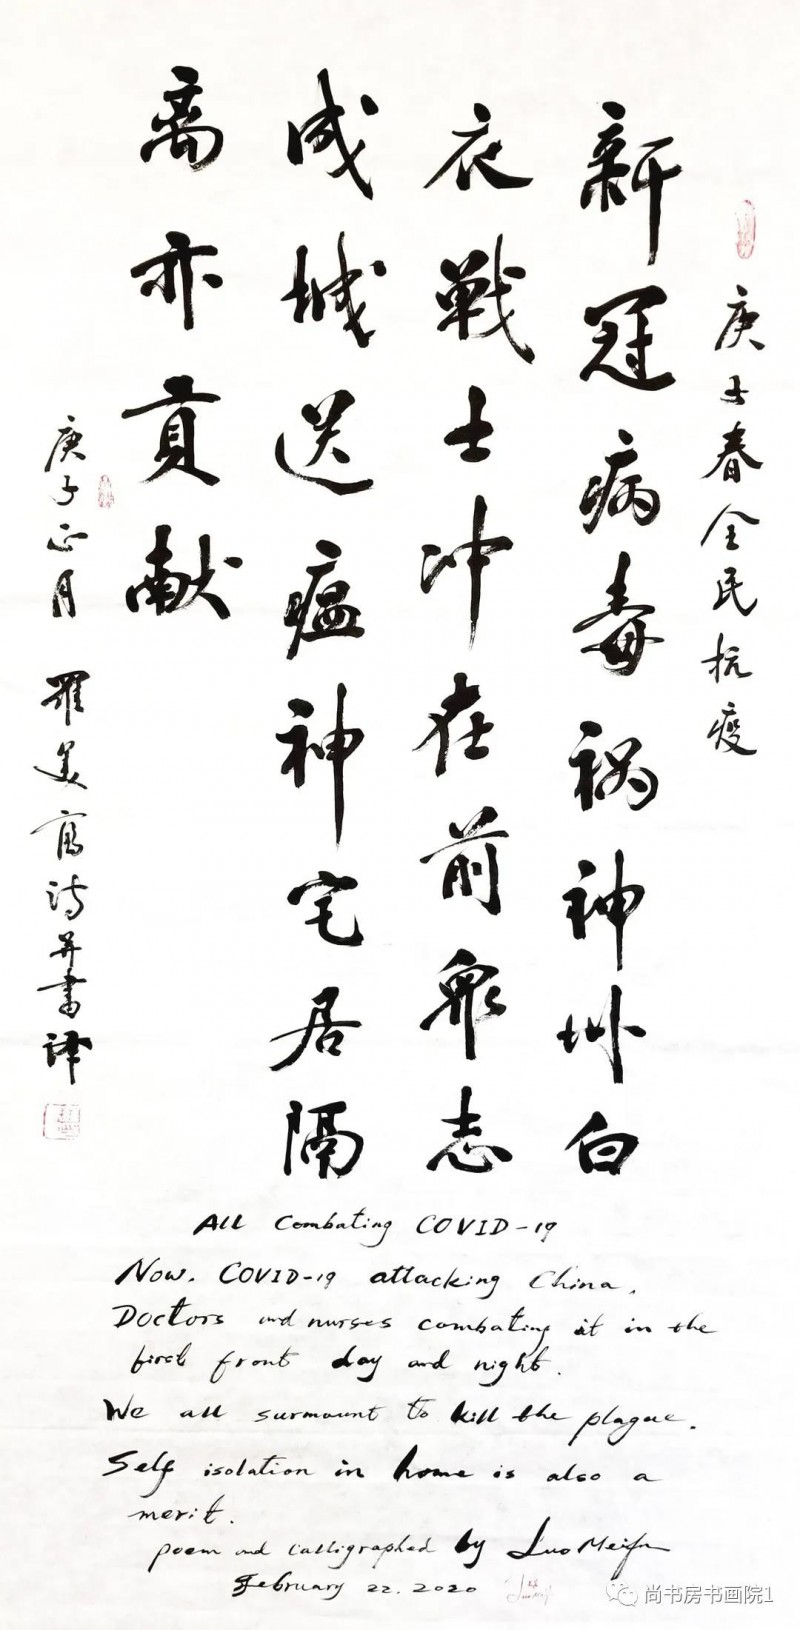 庚子春全民抗疫
新冠病毒祸神州白
衣戦士冲在前衆志
成城送瘟神宅居隔
离亦貢献
庚子正月 羅美富诗并書译
All Combating COVID-19
Now, COVID-19 attacking China,
Doctors and nurses combating it in the
first front day and night.
We all surmount to kill the plague.
Self isolation in home is also a
merit.
poem and calligraphed by Luo Meifu
February 22. 2020
尚书房书画院1